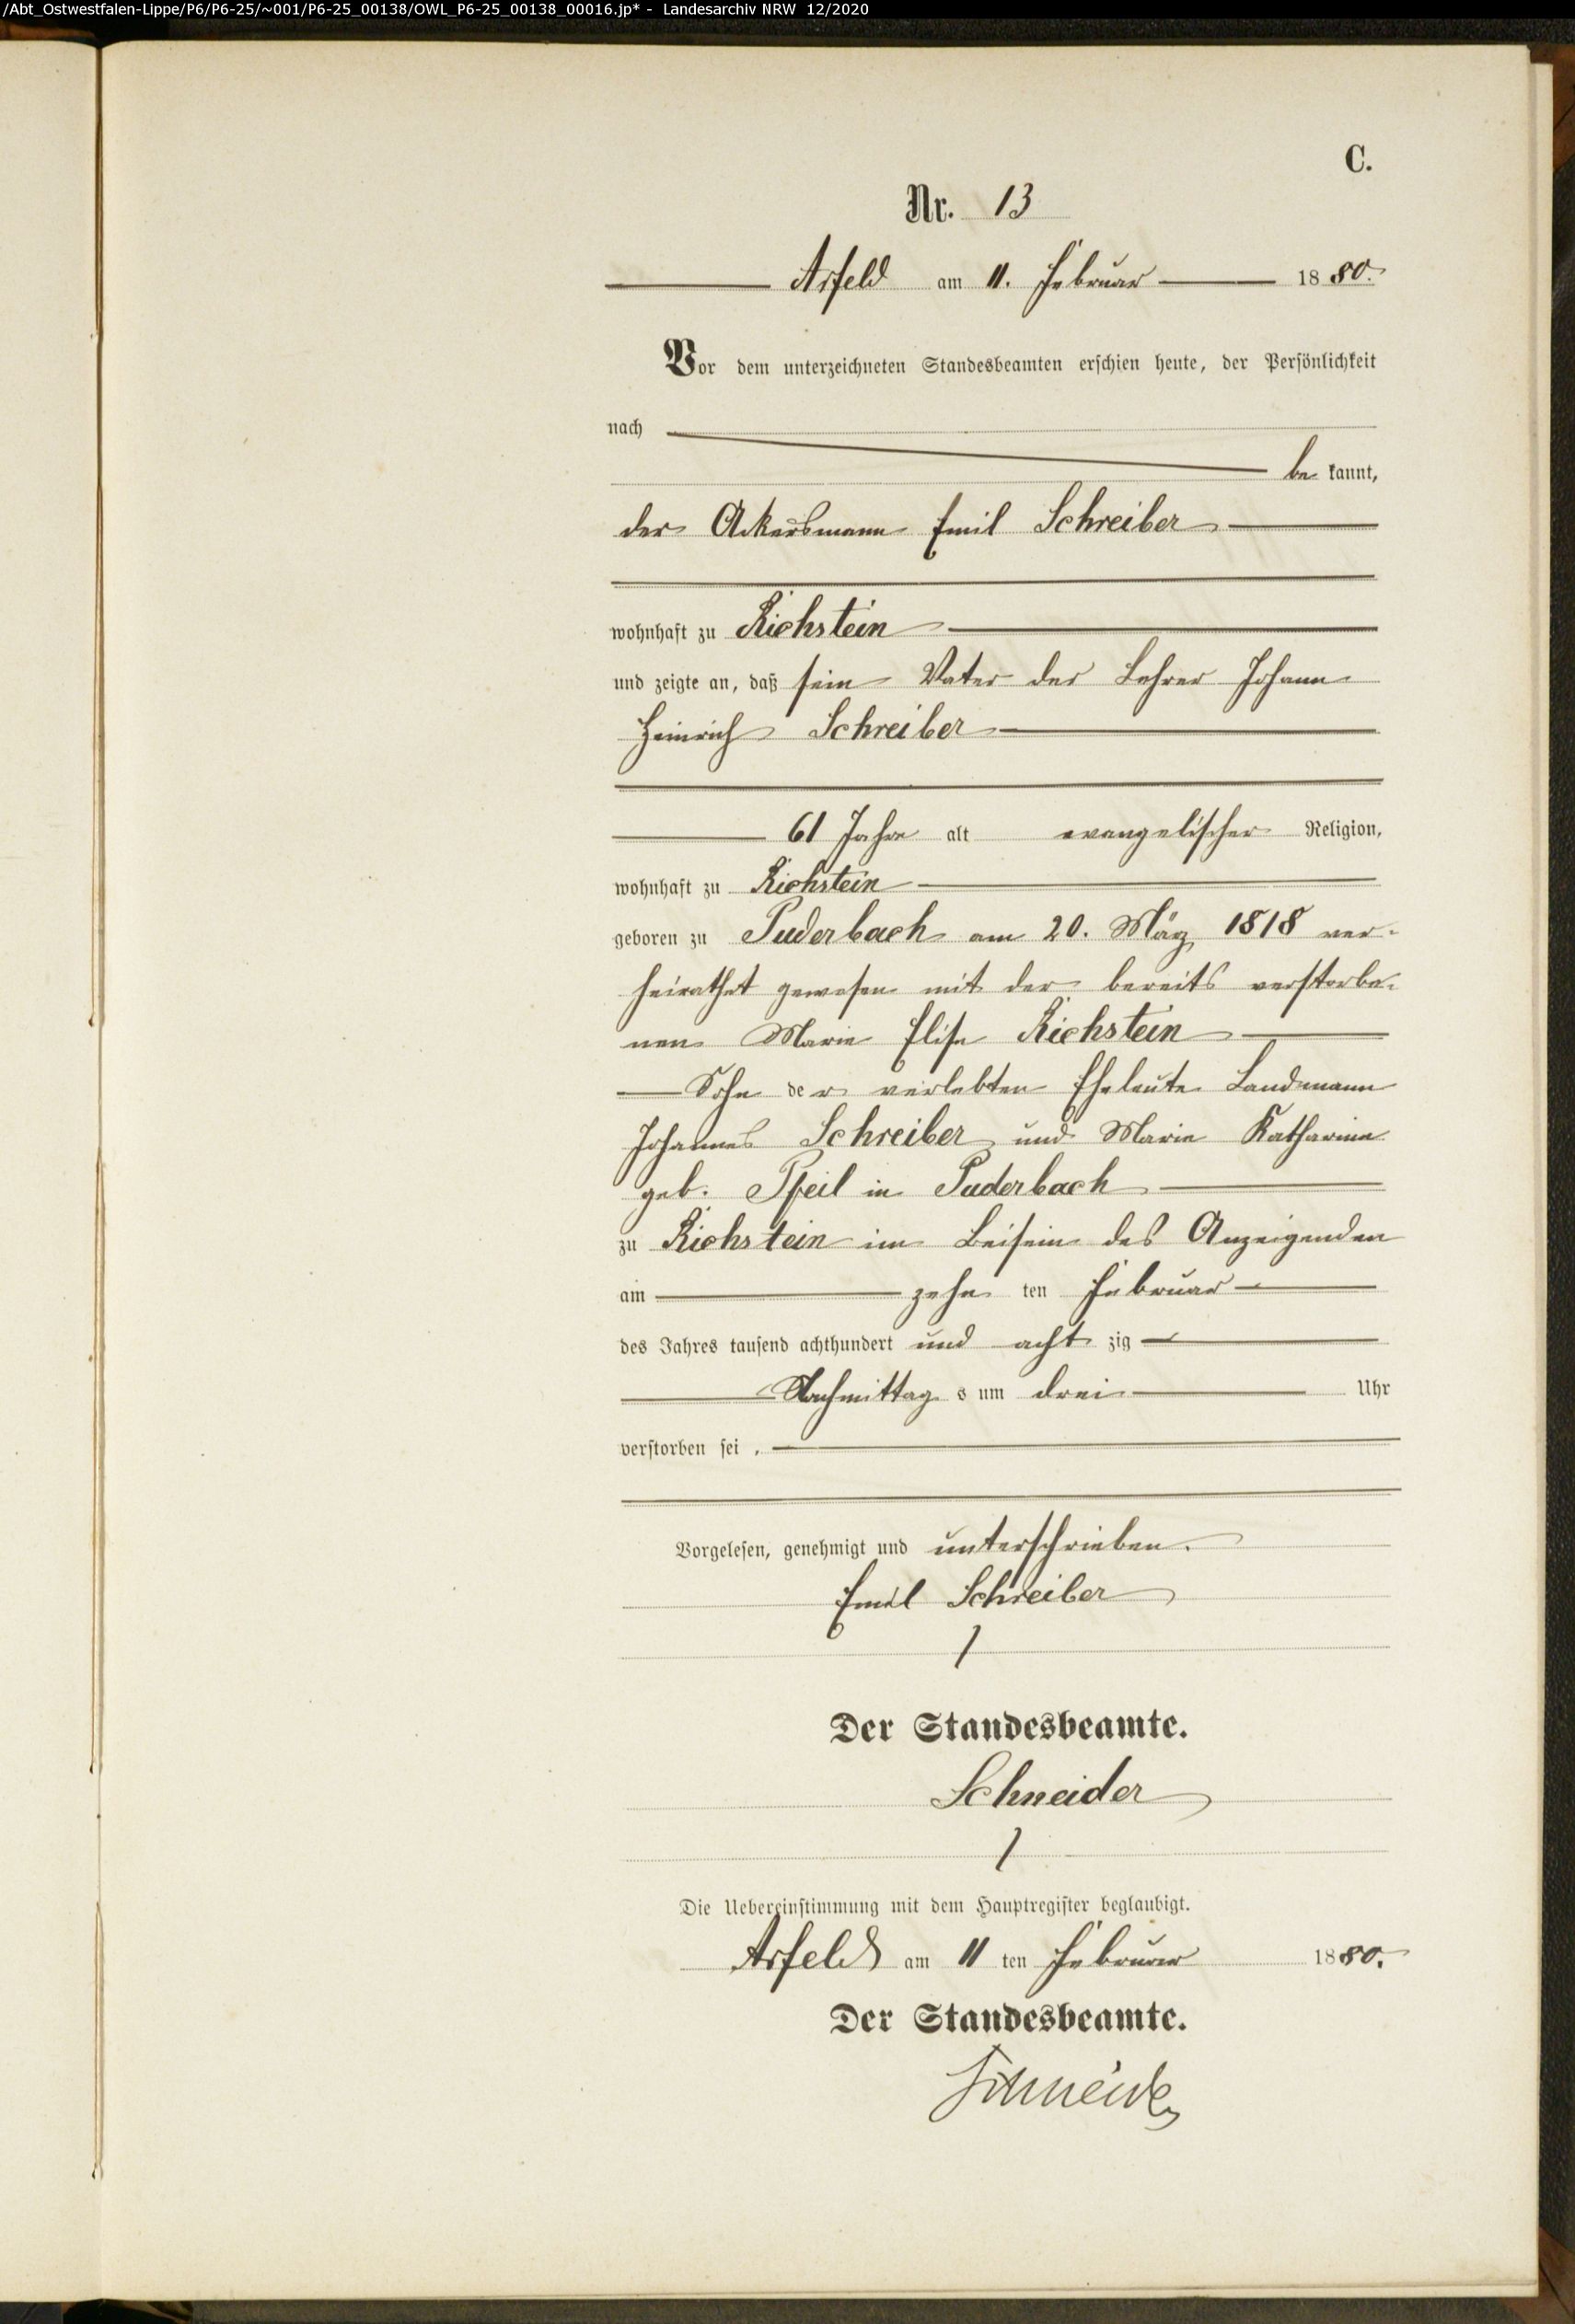 /Abt_Ostwestfalen-Lippe/P6/P6-25/~001/P6-25_00138/OWL_P6-25_00138_00016.jp* - Landesarchiv NRW 12/2020
C.
Nr. 13
Arfeld am 11. Februar 1880.
Vor dem unterzeichneten Standesbeamten erschien heute, der Persönlichkeit
nach
be kannt,
der Ackersmann Emil Schreiber
wohnhaft zu Richstein
und zeigte an, daß sein Vater der Lehrer Johann
Heinrich Schreiber
61 Jahre alt evangelischer Religion,
wohnhaft zu Richstein
geboren zu Puderbach am 20. März 1818 ver-
heirathet gewesen mit der bereits verstorbe-
nen Marie Elise Richstein
Sohn der verlebten Eheleute Landmann
Johannes Schreiber und Marie Katharine
geb. Pfeil in Puderbach
zu Richstein im Beisein des Anzeigenden
am zehn ten Februar
des Jahres tausend achthundert und acht zig
Nachmittag s um drei Uhr
verstorben sei.
Vorgelesen, genehmigt und unterschrieben.
Emil Schreiber
Der Standesbeamte.
Schneider
Die Uebereinstimmung mit dem Hauptregister beglaubigt.
Arfeld am 11 ten Februar 1880.
Der Standesbeamte.
Schneider